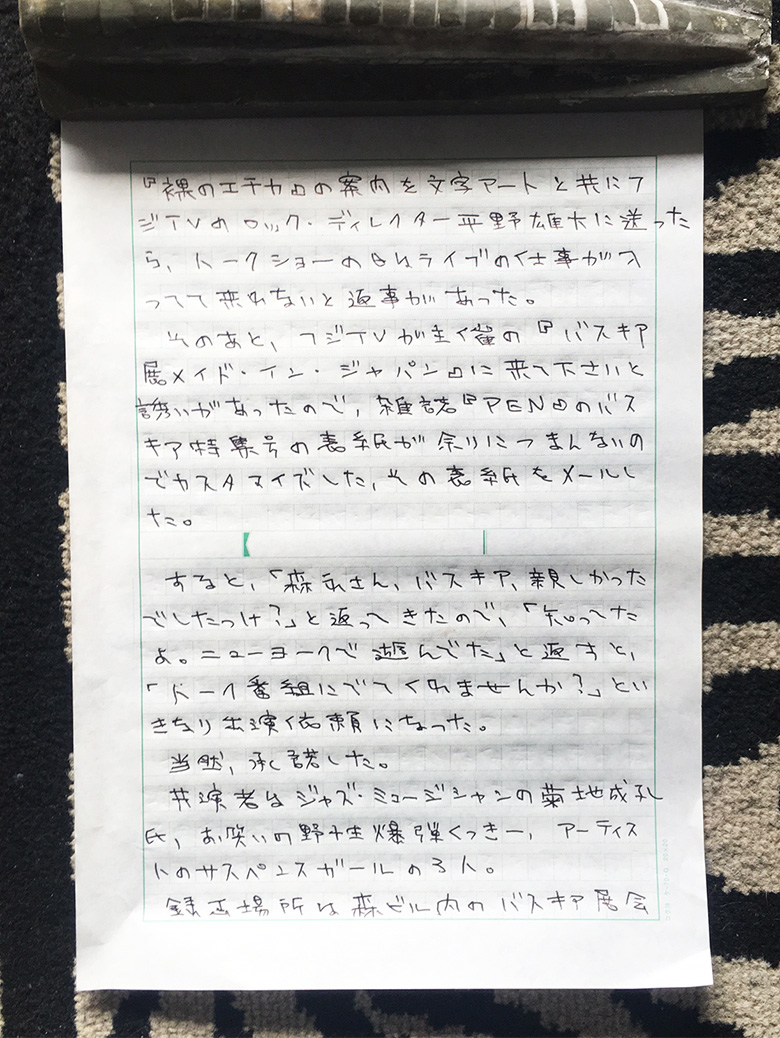 『裸のエチカ』の案内を文字アートと共にフ
ジTVのロック・ディレクター平野雄大に送った
ら、トークショーの日はライブの仕事が入
ってて来れないと返事があった。
そのあと、フジTVが主催の『バスキア
展メイド・イン・ジャパン』に来て下さいと
誘いがあったので、雑誌『PEN』のバス
キア特集号の表紙が余りにつまんないの
でカスタマイズした、その表紙をメールし
た。
すると、「森永さん、バスキア、親しかった
でしたっけ?」と返ってきたので、「知ってた
よ。ニューヨークで遊んでた」と返すと、
「トーク番組にでてくれませんか?」とい
きなり出演依頼になった。
当然、承諾した。
共演者はジャズ・ミュージシャンの菊地成孔
氏、お笑いの野性爆弾くっきー、アーティス
トのサスペンスガールの3人。
録画場所は森ビル内のバスキア展会